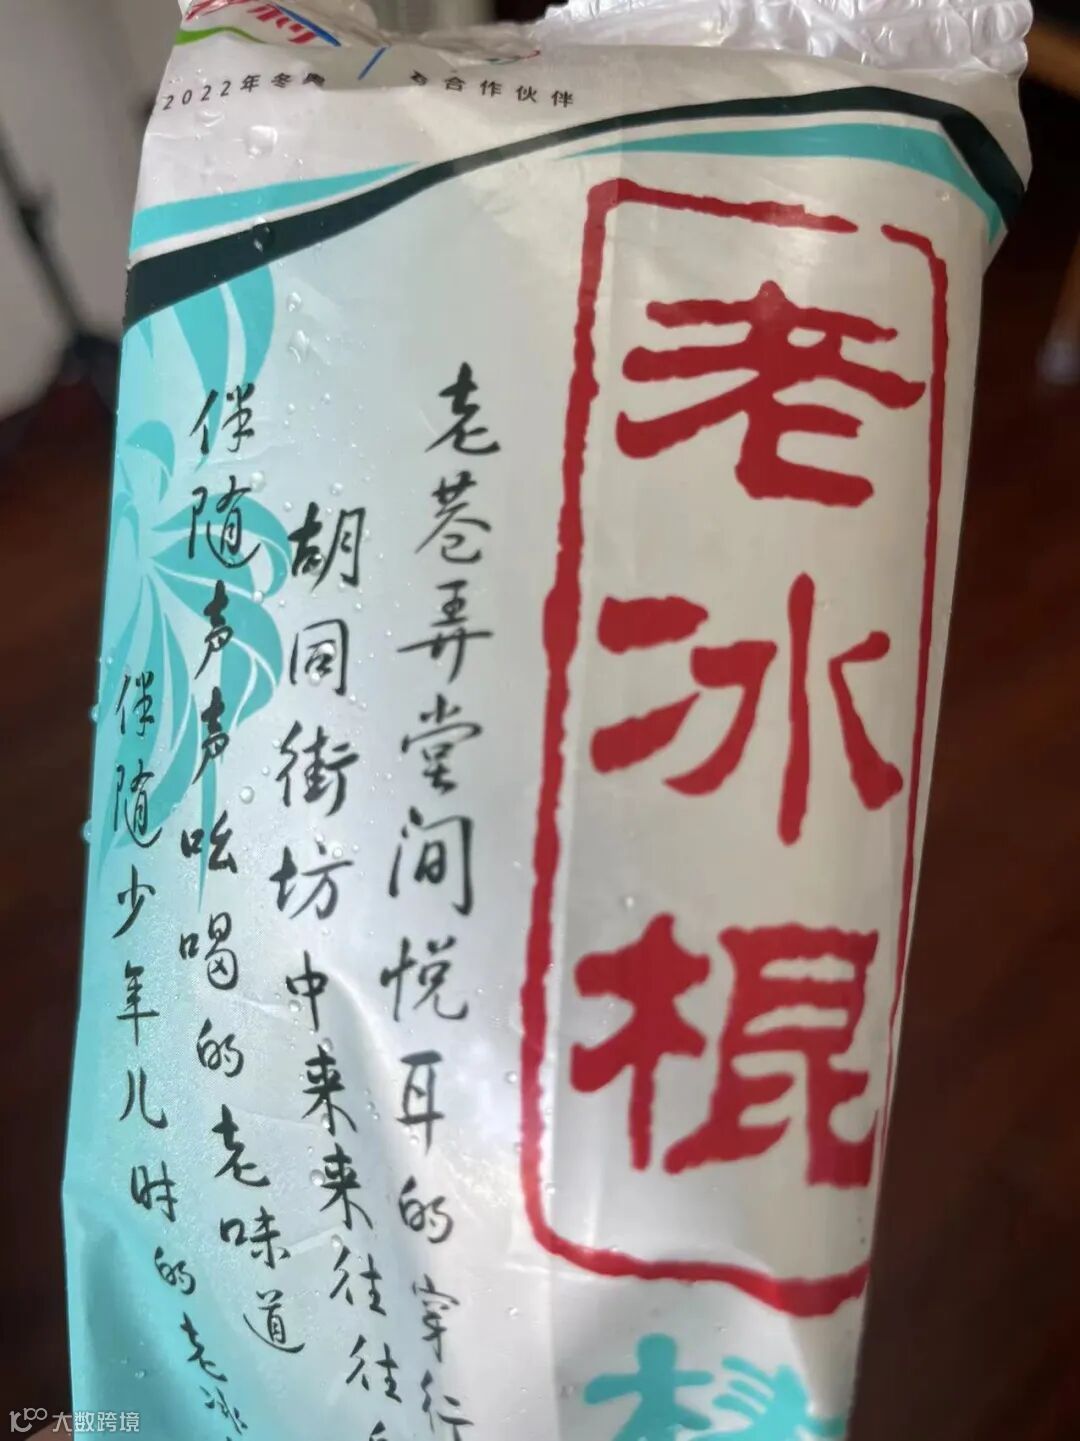 2022年冬奥
合作伙伴
老冰棍
老巷弄堂间悦耳的穿行
胡同街坊中来来往往
伴随声声吆喝的老味道
伴随少年儿时的老冰
大数跨境